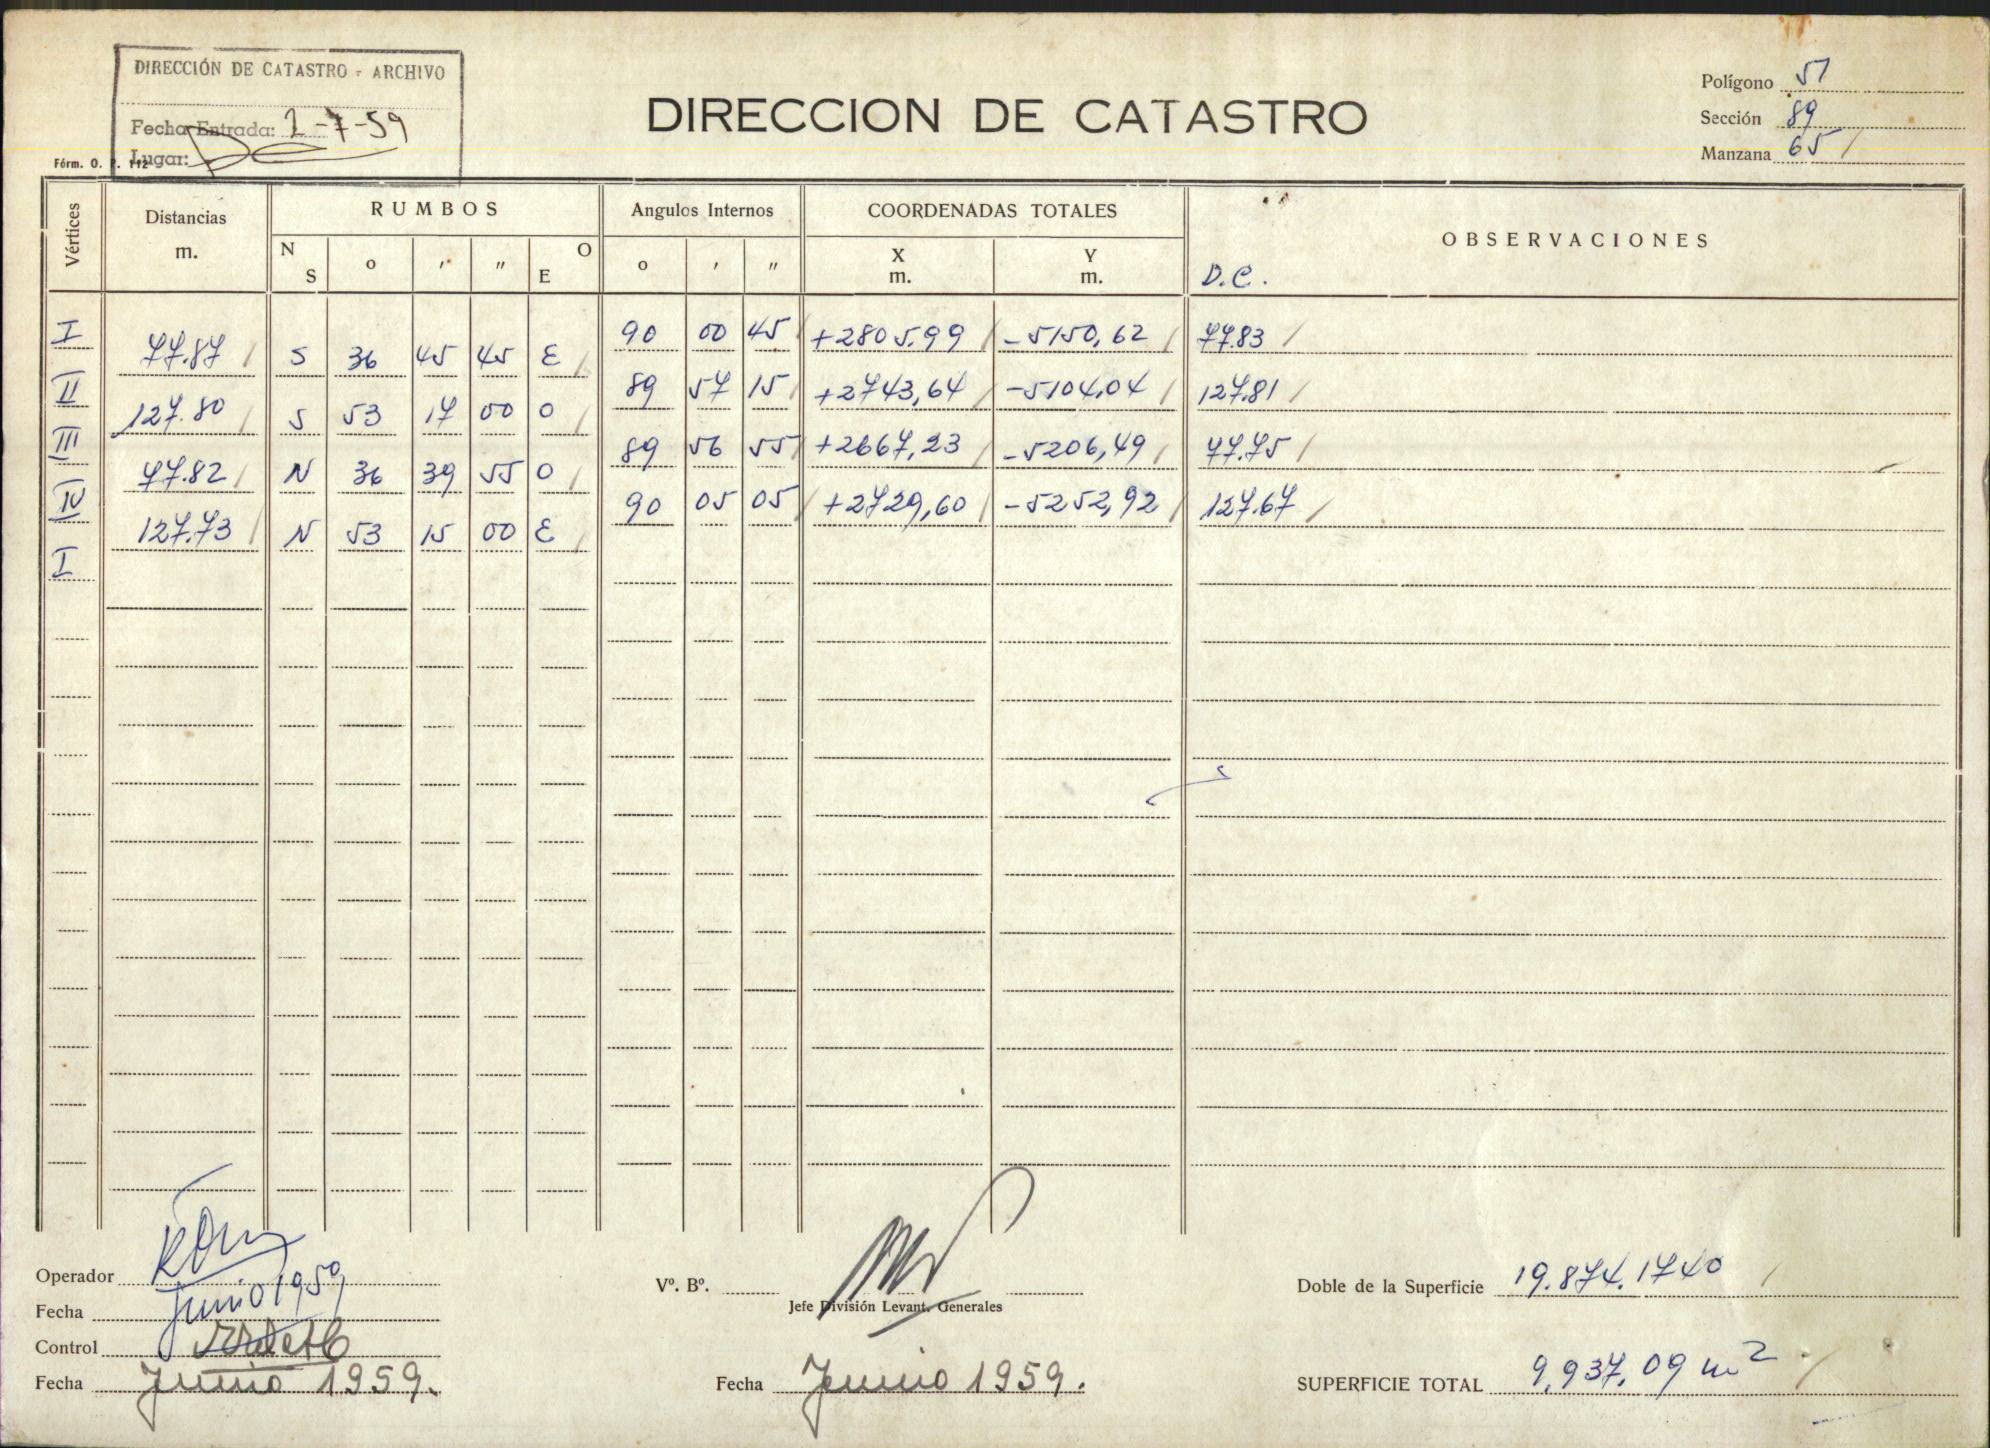 DIRECCIÓN DE CATASTRO - ARCHIVO
Fecha Entrada: 2-7-59
Lugar:
Fórm. O. P. 112
DIRECCION DE CATASTRO
Polígono 51
Sección 89
Manzana 65
Vértices
Distancias m.
RUMBOS
N S
o
'
"
O E
Angulos Internos
o ' "
COORDENADAS TOTALES
X m.
Y m.
OBSERVACIONES
D.C.
I 90 00 45 +2805.99 -5150,62 77.83
77.87 S 36 45 45 E
II 89 57 15 +2743,64 -5104.04 127.81
127.80 S 53 17 00 O
III 89 56 55 +2667,23 -5206,49 77.75
77.82 N 36 39 55 O
IV 90 05 05 +2729,60 -5252,92 127.67
127.73 N 53 15 00 E
I
Operador
Fecha Junio 1959
Control
Fecha Junio 1959.
Vº. Bº.
Jefe División Levant. Generales
Fecha Junio 1959.
Doble de la Superficie 19.874.1740
SUPERFICIE TOTAL 9.937.09 m2